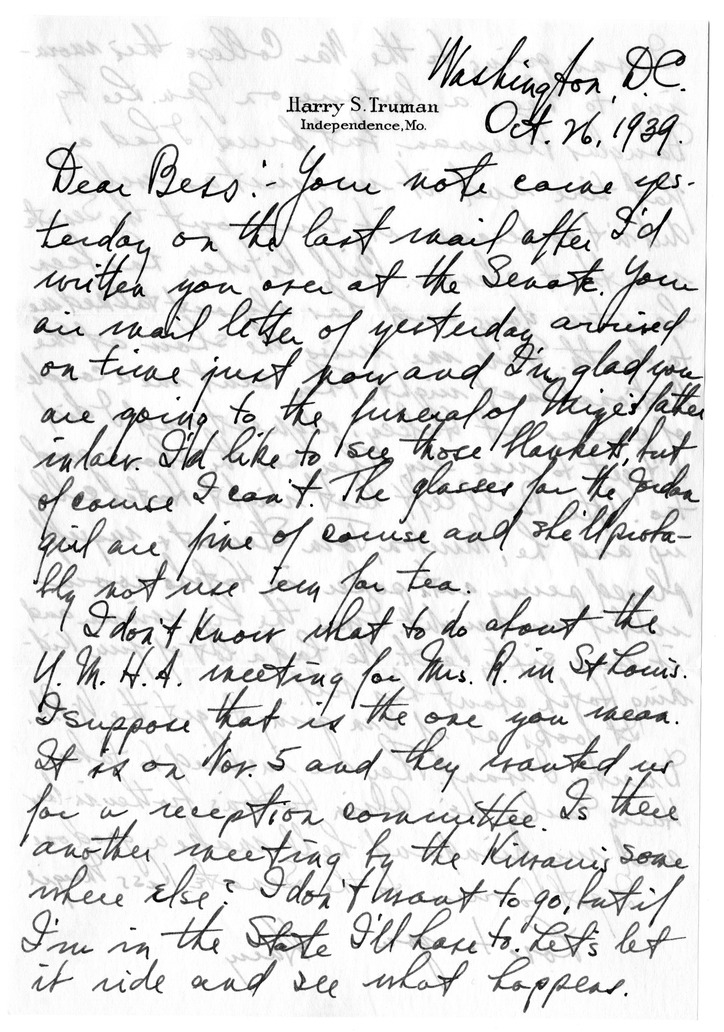 Washington, D.C.
Harry S. Truman
Independence, Mo.
Oct. 26, 1939.
Dear Bess:- Your note came yes-
terday on the last mail after I'd
written you over at the Senate. Your
air mail letter of yesterday arrived
on time just now and I'm glad you
are going to the funeral of Mize's father
in law. I'd like to see those blankets, but
of course I can't. The glasses for the Jordan
girl are fine of course and she'll proba-
bly not use 'em for tea.
I don't know what to do about the
Y. M. H. A. meeting for Mrs. R. in St Louis.
I suppose that is the one you mean.
It is on Nov. 5 and they wanted us
for a reception committee. Is there
another meeting by the Kiwanis some
where else? I don't want to go, but if
I'm in the State I'll have to. Let's let
it ride and see what happens.